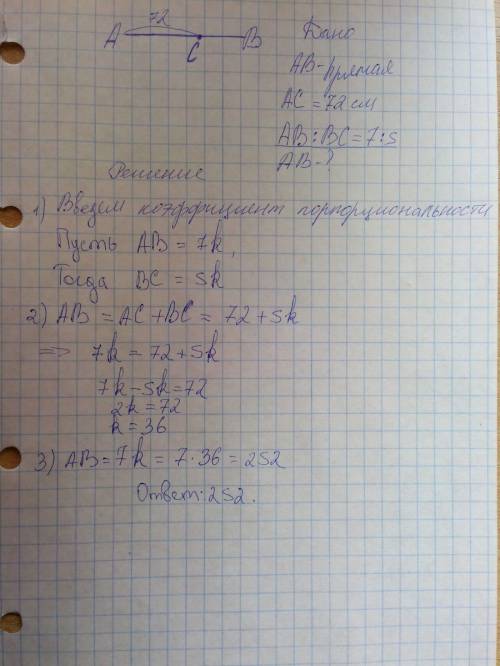 72
A C B
Дано
AB - прямая
AC = 72 см
AB : BC = 7 : 5
AB - ?
Решение
1) Введем коэффициент порпорциональности
Пусть AB = 7k,
Тогда BC = 5k
2) AB = AC + BC = 72 + 5k
=> 7k = 72 + 5k
7k - 5k = 72
2k = 72
k = 36
3) AB = 7k = 7 · 36 = 252
Ответ: 252.